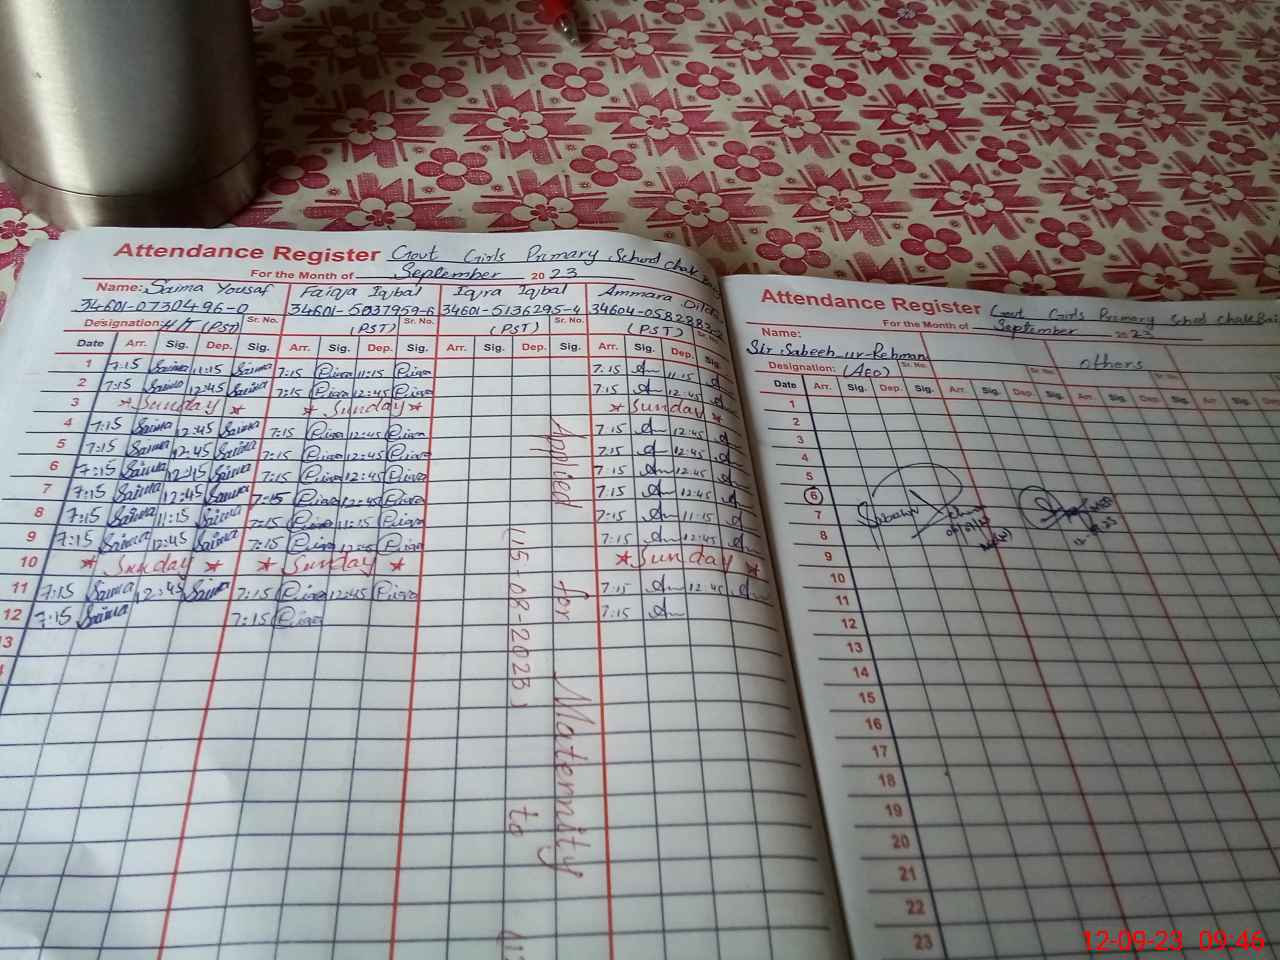 Attendance Register Govt Girls Primary School chak
For the Month of September 2023
Name: Saima Yousaf Faiqa Iqbal Iqra Iqbal Ammara
34601-0730496-0 34601-5037959-6 34601-5136295-4
Designation: H/T (PST) Sr. No. (PST) Sr. No. (PST) Sr. No. (PST) Sr. No.
Date Arr. Sig. Dep. Sig. Arr. Sig. Dep. Sig. Arr. Sig. Dep. Sig. Arr. Sig. Dep. Sig.
1 7:15 Saima 11:15 Saima 7:15 11:15 7:15 11:15
2 7:15 Saima 12:45 Saima 7:15 12:45 7:15 12:45
3 * Sunday * * Sunday * * Sunday *
4 7:15 Saima 12:45 Saima 7:15 12:45 7:15 12:45
5 7:15 Saima 12:45 Saima 7:15 12:45 7:15 12:45
6 7:15 Saima 12:45 Saima 7:15 12:45 7:15 12:45
7 7:15 Saima 12:45 Saima 7:15 12:45 7:15 12:45
8 7:15 Saima 11:15 Saima 7:15 11:15 7:15 11:15
9 7:15 Saima 12:45 Saima 7:15 12:45 7:15 12:45
10 * Sunday * * Sunday * * Sunday *
11 7:15 Saima 12:45 Saima 7:15 12:45 7:15 12:45
12 7:15 Saima 7:15 7:15
13
Applied for Maternity
(15-08-2023) to
Attendance Register Govt Girls Primary School chak
For the Month of September 2023
Name:
Sir Sabeeh-ur-Rehman others
Designation: (AEO) Sr. No. Sr. No. Sr. No.
Date Arr. Sig. Dep. Sig. Arr. Sig. Dep. Sig. Arr. Sig. Dep. Sig. Arr.
1
2
3
4
5
6
7
8
9
10
11
12
13
14
15
16
17
18
19
20
21
22
23
12-09-23 09:46